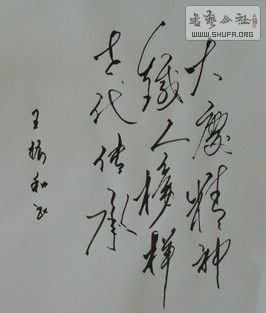 大慶精神
鐵人榜样
世代传承
王振和书
書藝公社
WWW.SHUFA.ORG